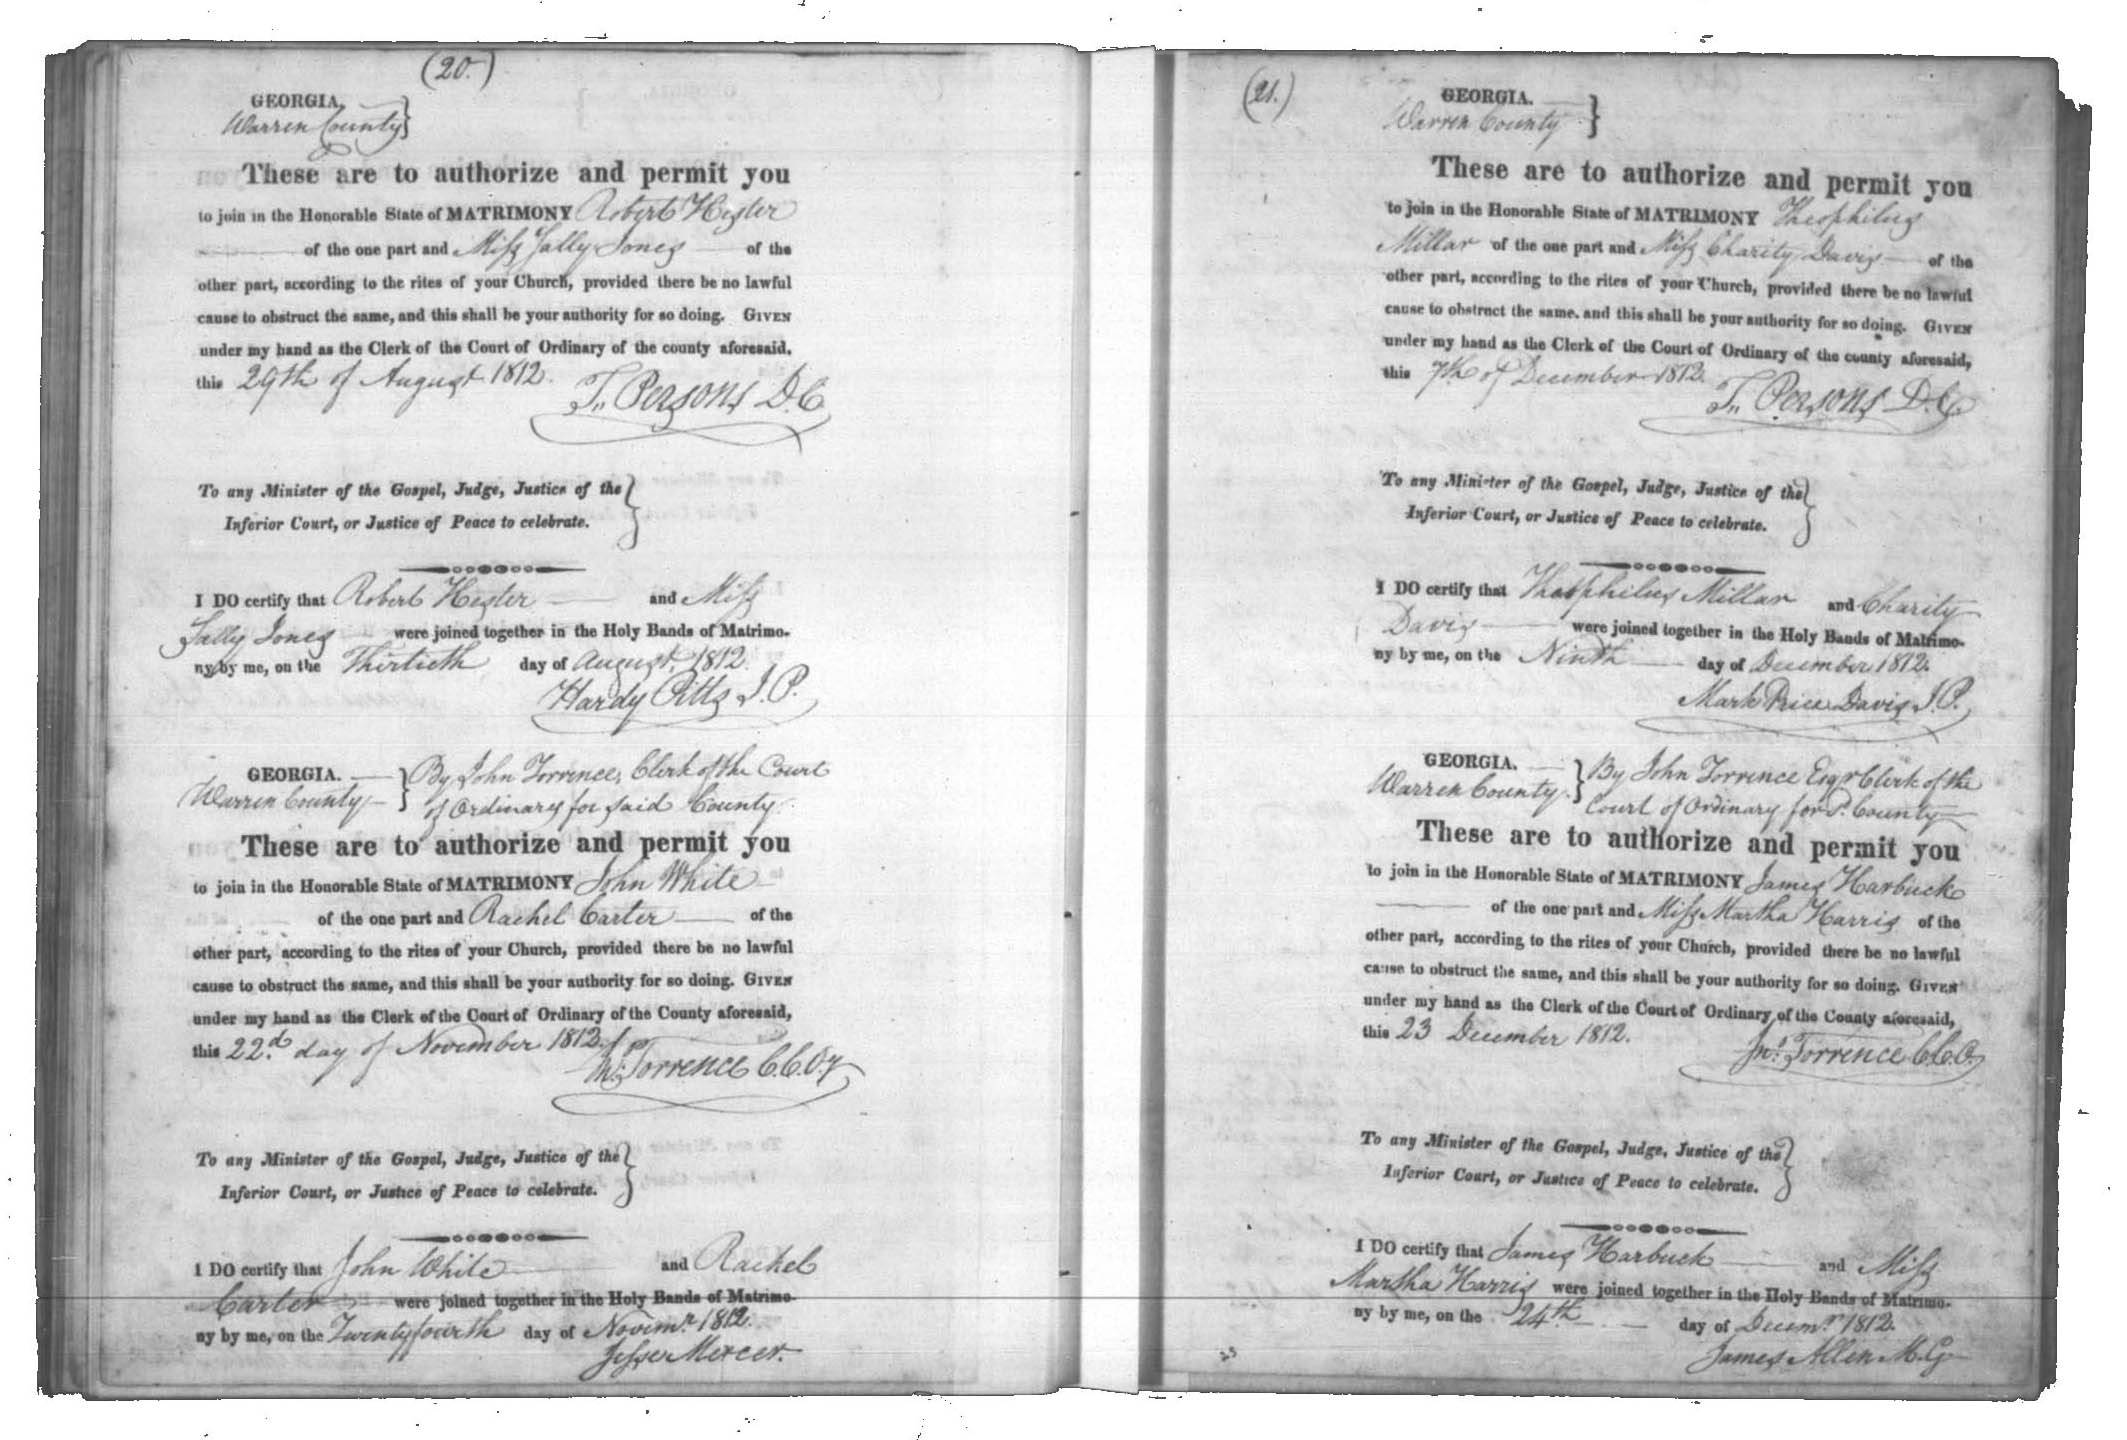 (20.)
GEORGIA,
Warren County
These are to authorize and permit you
to join in the Honorable State of MATRIMONY Robert Hester
of the one part and Miss Sally Jones of the
other part, according to the rites of your Church, provided there be no lawful
cause to obstruct the same, and this shall be your authority for so doing. GIVEN
under my hand as the Clerk of the Court of Ordinary of the county aforesaid,
this 29th of August 1812.
T. Persons D.C.
To any Minister of the Gospel, Judge, Justice of the
Inferior Court, or Justice of Peace to celebrate.
I DO certify that Robert Hester and Miss
Sally Jones were joined together in the Holy Bands of Matrimo-
ny by me, on the Thirtieth day of August, 1812.
Hardy Pitts J.P.
GEORGIA. By John Torrence, Clerk of the Court
Warren County of Ordinary for said County.
These are to authorize and permit you
to join in the Honorable State of MATRIMONY John White
of the one part and Rachel Carter of the
other part, according to the rites of your Church, provided there be no lawful
cause to obstruct the same, and this shall be your authority for so doing. GIVEN
under my hand as the Clerk of the Court of Ordinary of the County aforesaid,
this 22.d day of November 1812.
Jno. Torrence C.C.O.y
To any Minister of the Gospel, Judge, Justice of the
Inferior Court, or Justice of Peace to celebrate.
I DO certify that John White and Rachel
Carter were joined together in the Holy Bands of Matrimo-
ny by me, on the Twenty fourth day of Novemr. 1812.
Jesse Mercer.
(21.)
GEORGIA.
Warren County
These are to authorize and permit you
to join in the Honorable State of MATRIMONY Theophilus
Millar of the one part and Miss Charity Davis of the
other part, according to the rites of your Church, provided there be no lawful
cause to obstruct the same, and this shall be your authority for so doing. GIVEN
under my hand as the Clerk of the Court of Ordinary of the county aforesaid,
this 7th of December 1812.
T. Persons D.C.
To any Minister of the Gospel, Judge, Justice of the
Inferior Court, or Justice of Peace to celebrate.
I DO certify that Theophilus Millar and Charity
Davis were joined together in the Holy Bands of Matrimo-
ny by me, on the Ninth day of December 1812.
Mark Price Davis J.P.
GEORGIA. By John Torrence Esqr Clerk of the
Warren County. Court of Ordinary for S. County
These are to authorize and permit you
to join in the Honorable State of MATRIMONY James Harbuck
of the one part and Miss Martha Harris of the
other part, according to the rites of your Church, provided there be no lawful
cause to obstruct the same, and this shall be your authority for so doing. GIVEN
under my hand as the Clerk of the Court of Ordinary of the County aforesaid,
this 23 December 1812.
Jno. Torrence C.C.O.
To any Minister of the Gospel, Judge, Justice of the
Inferior Court, or Justice of Peace to celebrate.
I DO certify that James Harbuck and Miss
Martha Harris were joined together in the Holy Bands of Matrimo-
ny by me, on the 24th day of Decemr. 1812.
James Allen M.G.
23